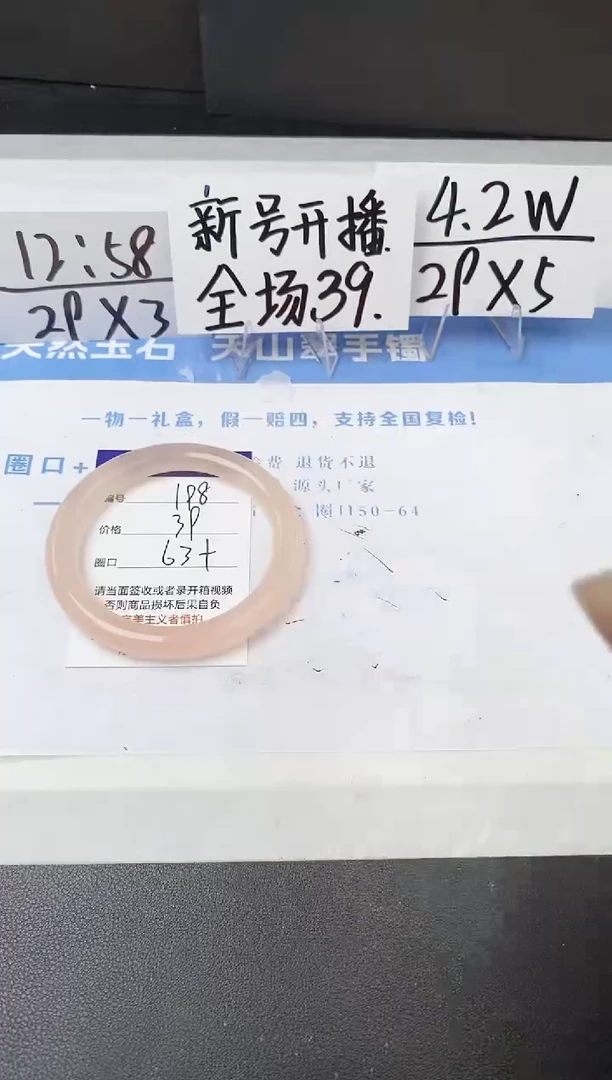 12:58
2P X 3
新号开播.
全场39.
4.2W
2P X 5
天然玉石 天山翠手镯
一物一礼盒，假一赔四，支持全国复检!
圈口+
费 退货不退
源头厂家
圈口50-64
编号 198
价格 3P
圈口 63+
请当面签收或者录开箱视频
否则商品损坏后果自负
完美主义者慎拍